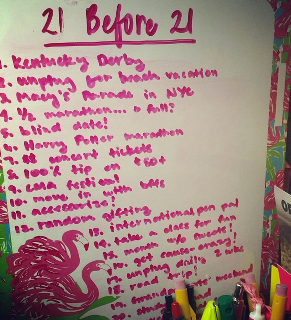 21 Before 21
1. Kentucky Derby
2. unplug for beach vacation
3. Macy's Parade in NYC
4. 1/2 marathon... a full?
5. blind date!
6. Harry Potter marathon
7. $$ concert tickets
8. 100% tip on $50+
9. CMA festival
10. move in with bffs
11. accessorize!
12. random gifting
13. international pen pal
14. take a class for fun
15. month w/o sweets!
16. get cause crazy!
17. unplug daily 2 wks
18. road trip!
19. weekend
20.